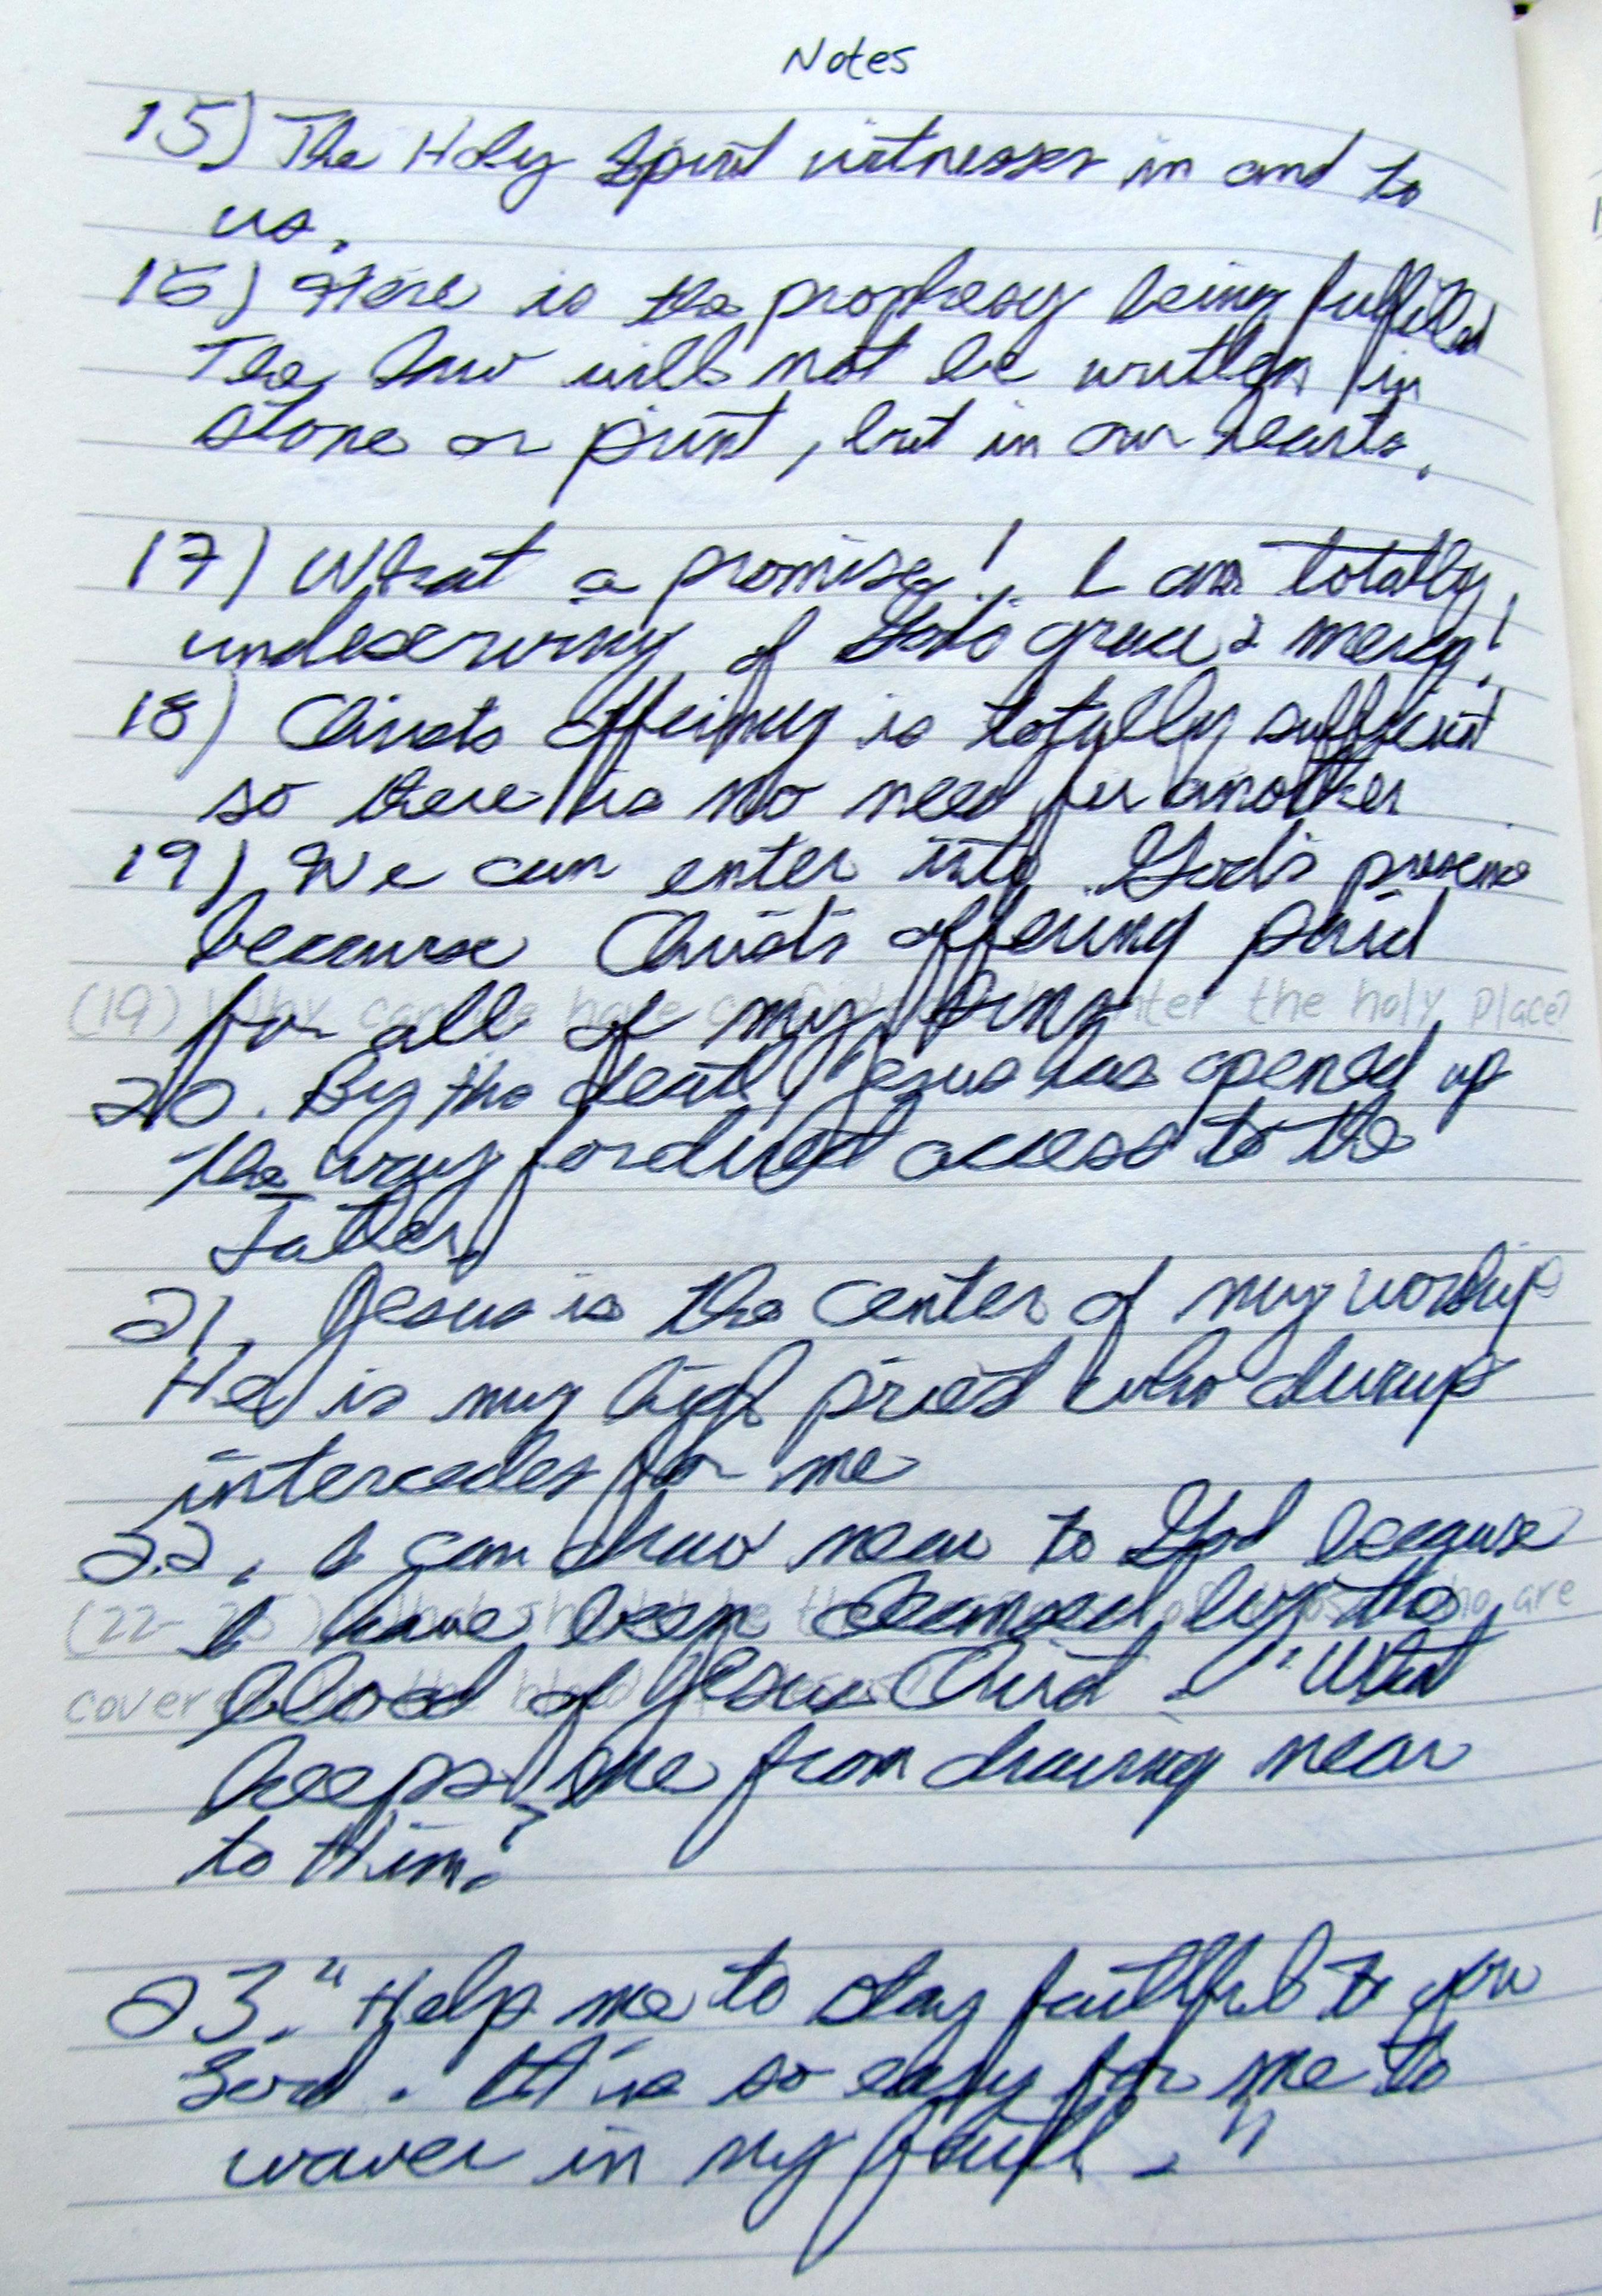 Notes
15) The Holy Spirit witnesses in and to
us.
16) Here is the prophesy being fulfilled
The law will not be written in
stone or print, but in our hearts.
17) What a promise! I am totally
undeserving of God's grace & mercy!
18) Christs offering is totally sufficient
so there is no need for another
19) We can enter into God's presence
because Christ's offering paid
(19) Why can we have confidence to enter the holy place?
for all of my sins
20. By the death Jesus has opened up
the way for direct access to the
Father.
21. Jesus is the center of my worship
He is my high priest who always
intercedes for me
22. I can draw near to God because
(22-25) What should be the of those who are
I have been cleansed by the
blood of Jesus Christ. "What
covered by the blood of Jesus?
keeps me from drawing near
to Him?
23. "Help me to stay faithful to you
Lord. It is so easy for me to
waver in my faith."